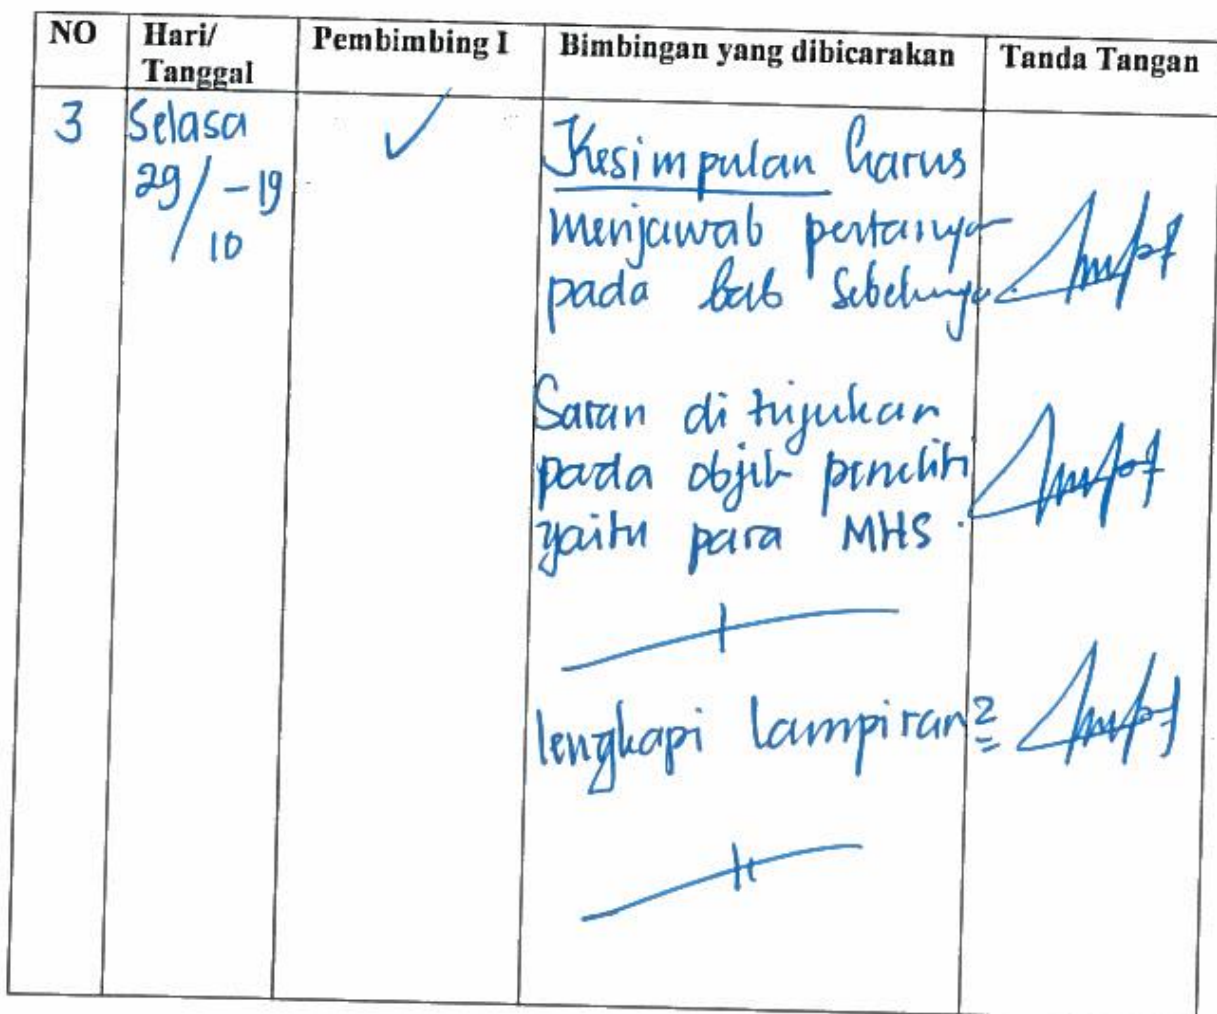 NO Hari/ Tanggal Pembimbing I Bimbingan yang dibicarakan Tanda Tangan
3 Selasa
29/10 -19
Kesimpulan harus
menjawab pertanya
pada bab sebelumnya.
Saran di tujukan
pada objek peneliti
yaitu para MHS.
lengkapi lampiran2